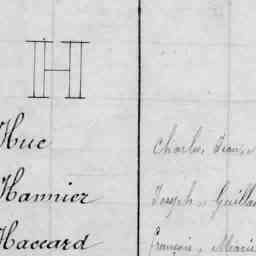 H
Huc Charles, Jean,
Hannier Joseph, Guilla
Haccard François, Marie